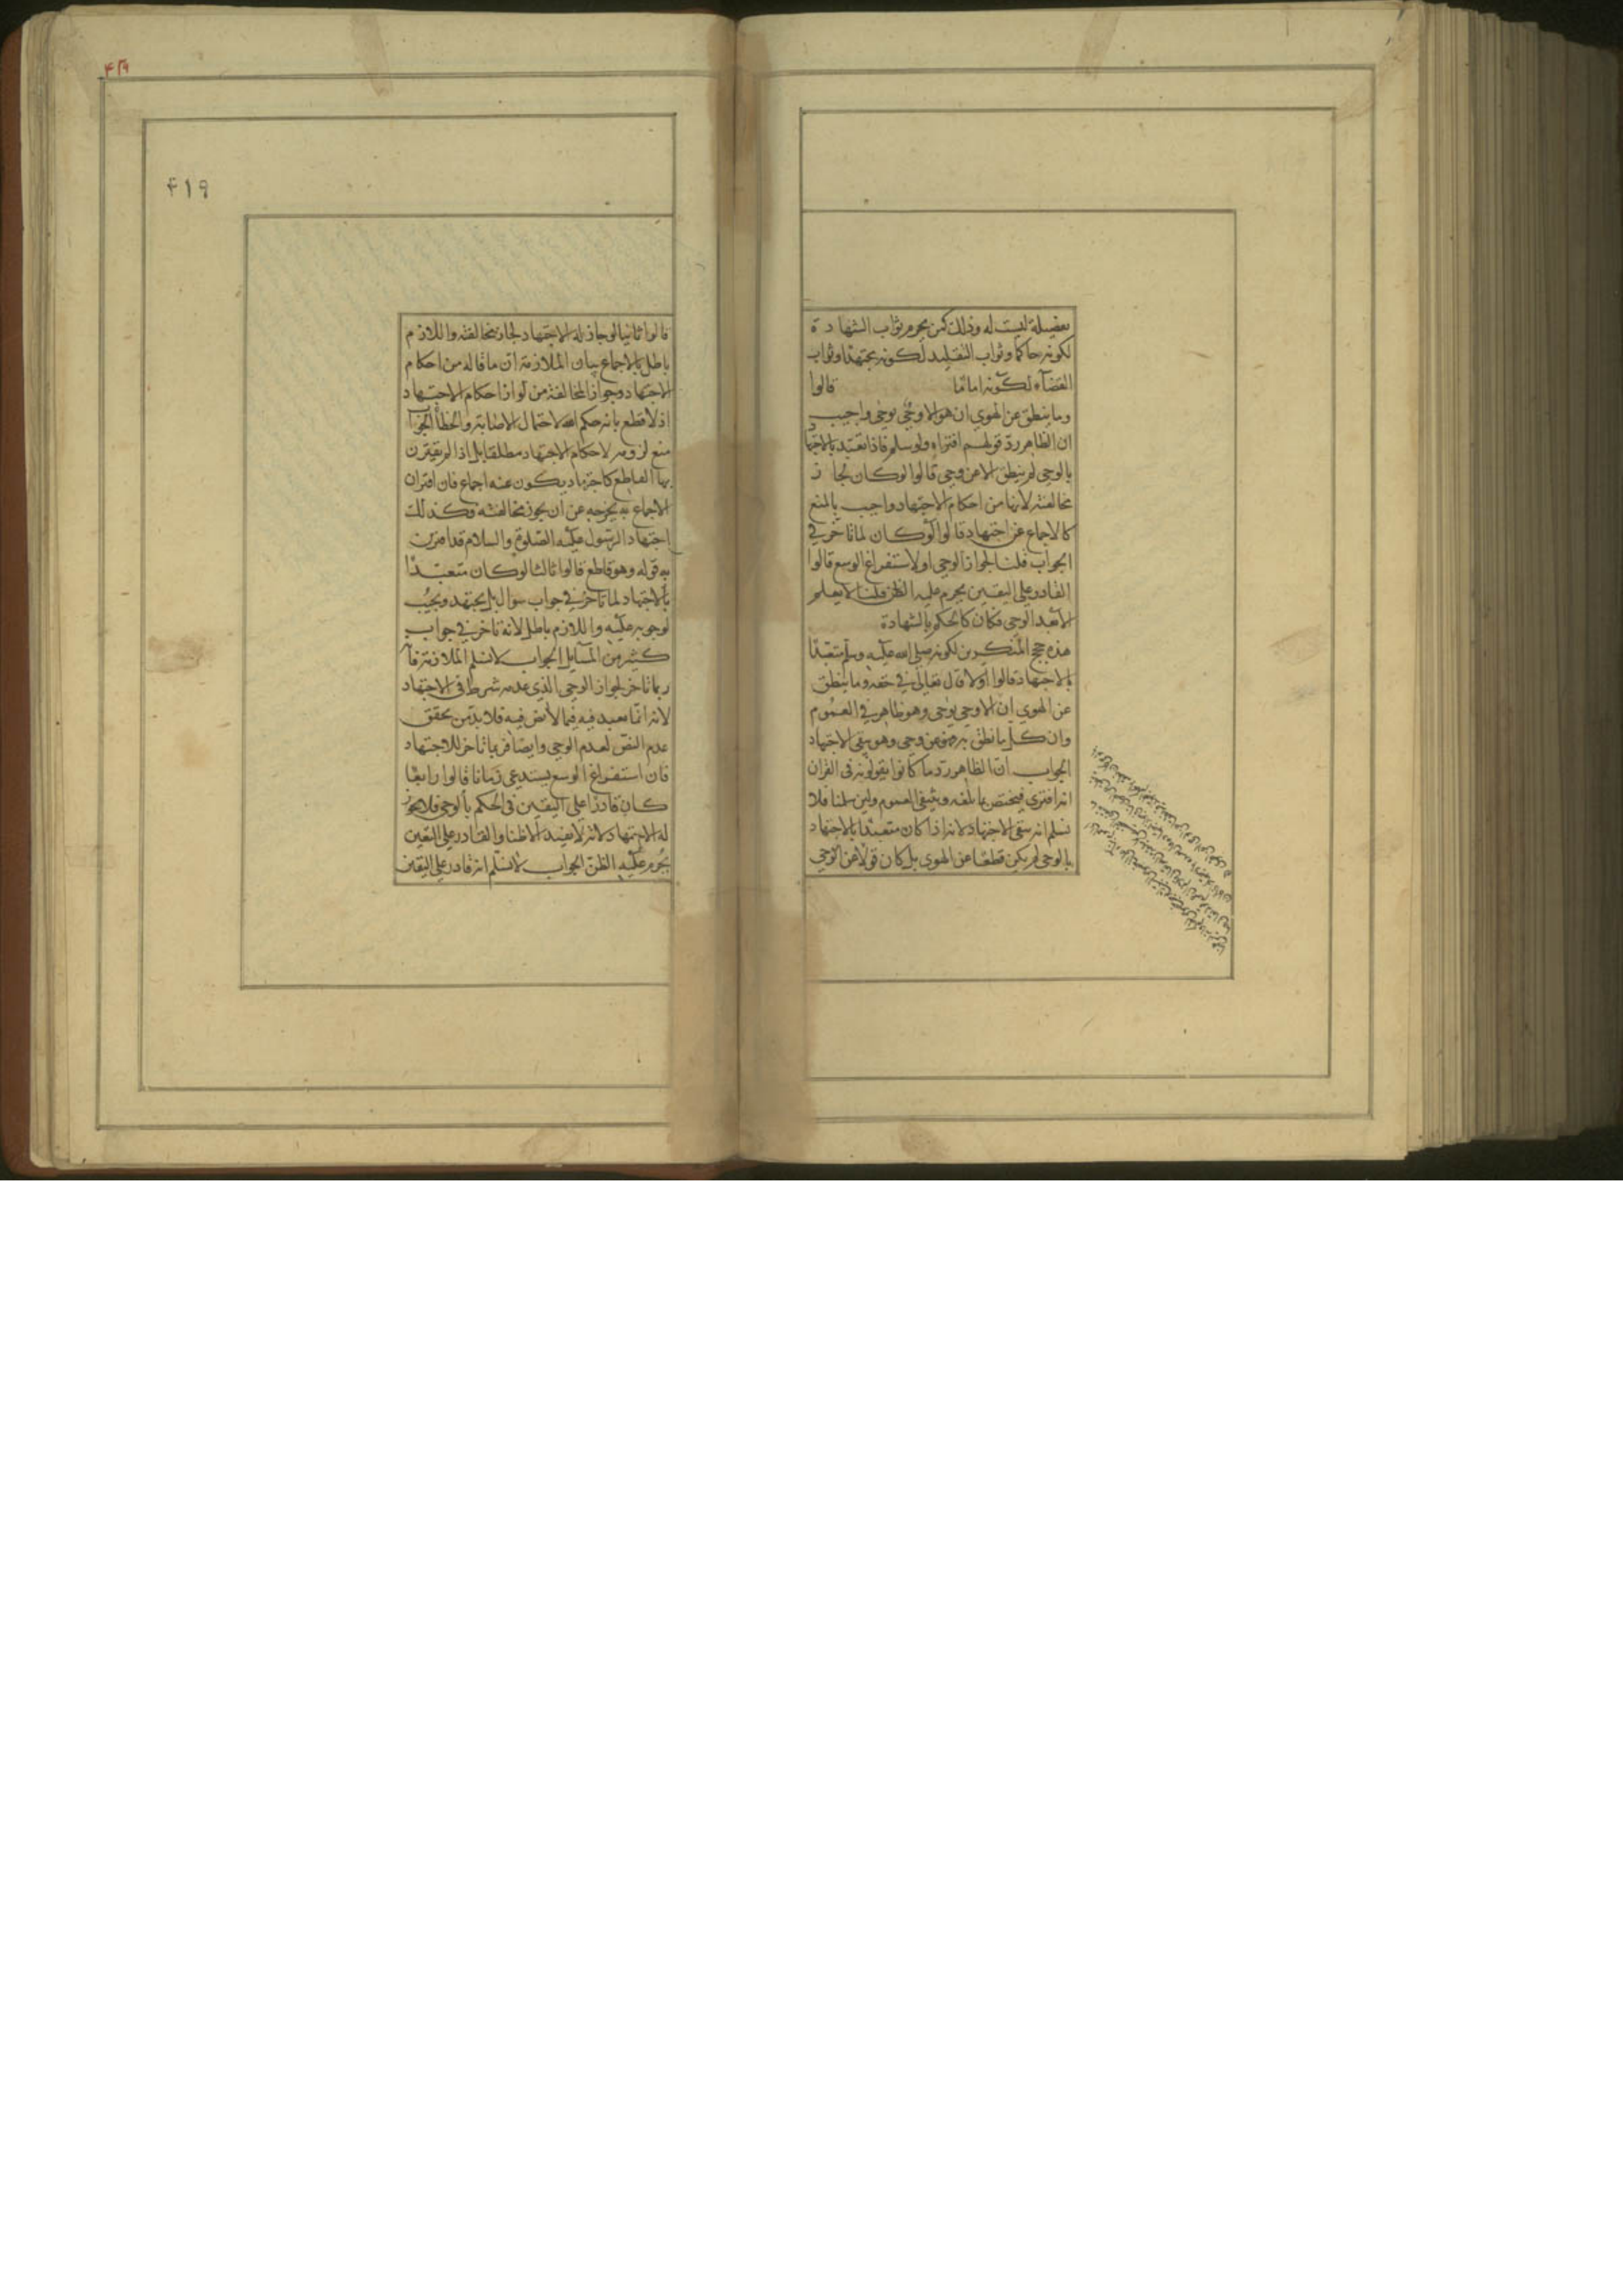 بفضيلة ليست له وذلك كمن يحرم ثواب الشهادة
لكونه حاكما وثواب التقليد لكونه مجتهدا وثواب
القضآء لكونه اماما قالوا
وما ينطق عن الهوي ان هو الا وحي يوحي واجيب
ان الظاهر رد قولهم افتراه ولو سلم فاذا تعبد بالاجتهاد
بالوحي لم ينطق الا عن وحي قالوا لو كان لجاز
مخالفته لانها من احكام الاجتهاد واجيب بالمنع
كالاجماع عن اجتهاد قالوا لو كان لما تاخر في
الجواب قلنا لجواز الوحي او لاستفراغ الوسع قالوا
القادر علي اليقين يحرم عليه الظن قلنا لا يعلم
الا بعد الوحي فكان كالحكم بالشهادة
هذه حجج المنكرين لكونه صلي الله عليه وسلم متعبدا
بالاجتهاد قالوا اولا قال تعالي في حقه وما ينطق
عن الهوي ان الا وحي يوحي وهو ظاهر في العموم
وان كل ما نطق به فهو عن وحي وهو ينفي الاجتهاد
الجواب ان الظاهر رد ما كانوا يقولونه في القران
انه افتري فيختص بما بلغه وينتفي العموم ولين سلمنا فلا
نسلم انه ينفي الاجتهاد لانه اذا كان متعبدا بالاجتهاد
بالوحي لم يكن نطقا عن الهوي بل كان قولا عن الوحي
۴۱۹
۴۱۹
قالوا ثانيا لو جاز له الاجتهاد لجاز مخالفته واللازم
باطل بالاجماع بيان الملازمة ان ما قاله من احكام
الاجتهاد وجواز المخالفة من لوازم احكام الاجتهاد
اذ لا قطع بانه حكم الله لاحتمال الاصابة والخطأ الجواب
منع لزومه لاحكام الاجتهاد مطلقا بل اذا لم يقترن
بها القاطع كاجتهاد يكون عنه اجماع فان اقتران
الاجماع به يخرجه عن ان يجوز مخالفته فكذلك
اجتهاد الرسول عليه الصلوة والسلام قد اقترن
به قوله وهو قاطع قالوا ثالثا لو كان متعبدا
بالاجتهاد لما تاخر في جواب سوال بل يجتهد ويجيب
لوجوبه عليه واللازم باطل لانه تاخر في جواب
كثير من المسايل الجواب لا نسلم الملازمة فانه
ربما تاخر لجواز الوحي الذي عدمه شرط في الاجتهاد
لانه انما تعبد فيه فيما لا نص فيه فلا بد من تحقق
عدم النص لعدم الوحي وايضا فربما تاخر للاجتهاد
فان استفراغ الوسع يستدعي زمانا قالوا رابعا
كان قادرا علي اليقين في الحكم بالوحي فلا يجوز
له الاجتهاد لانه لا يفيد الا ظنا والقادر علي اليقين
يحرم عليه الظن الجواب لا نسلم انه قادر علي اليقين